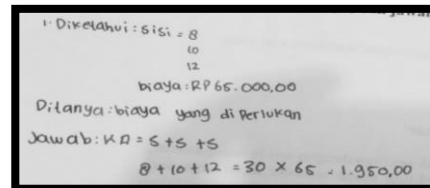 1. Diketahui : Sisi = 8
10
12
biaya : RP 65.000,00
Ditanya : biaya yang di Perlukan
Jawab : K△ = S + S + S
8 + 10 + 12 = 30 × 65 = 1.950,00